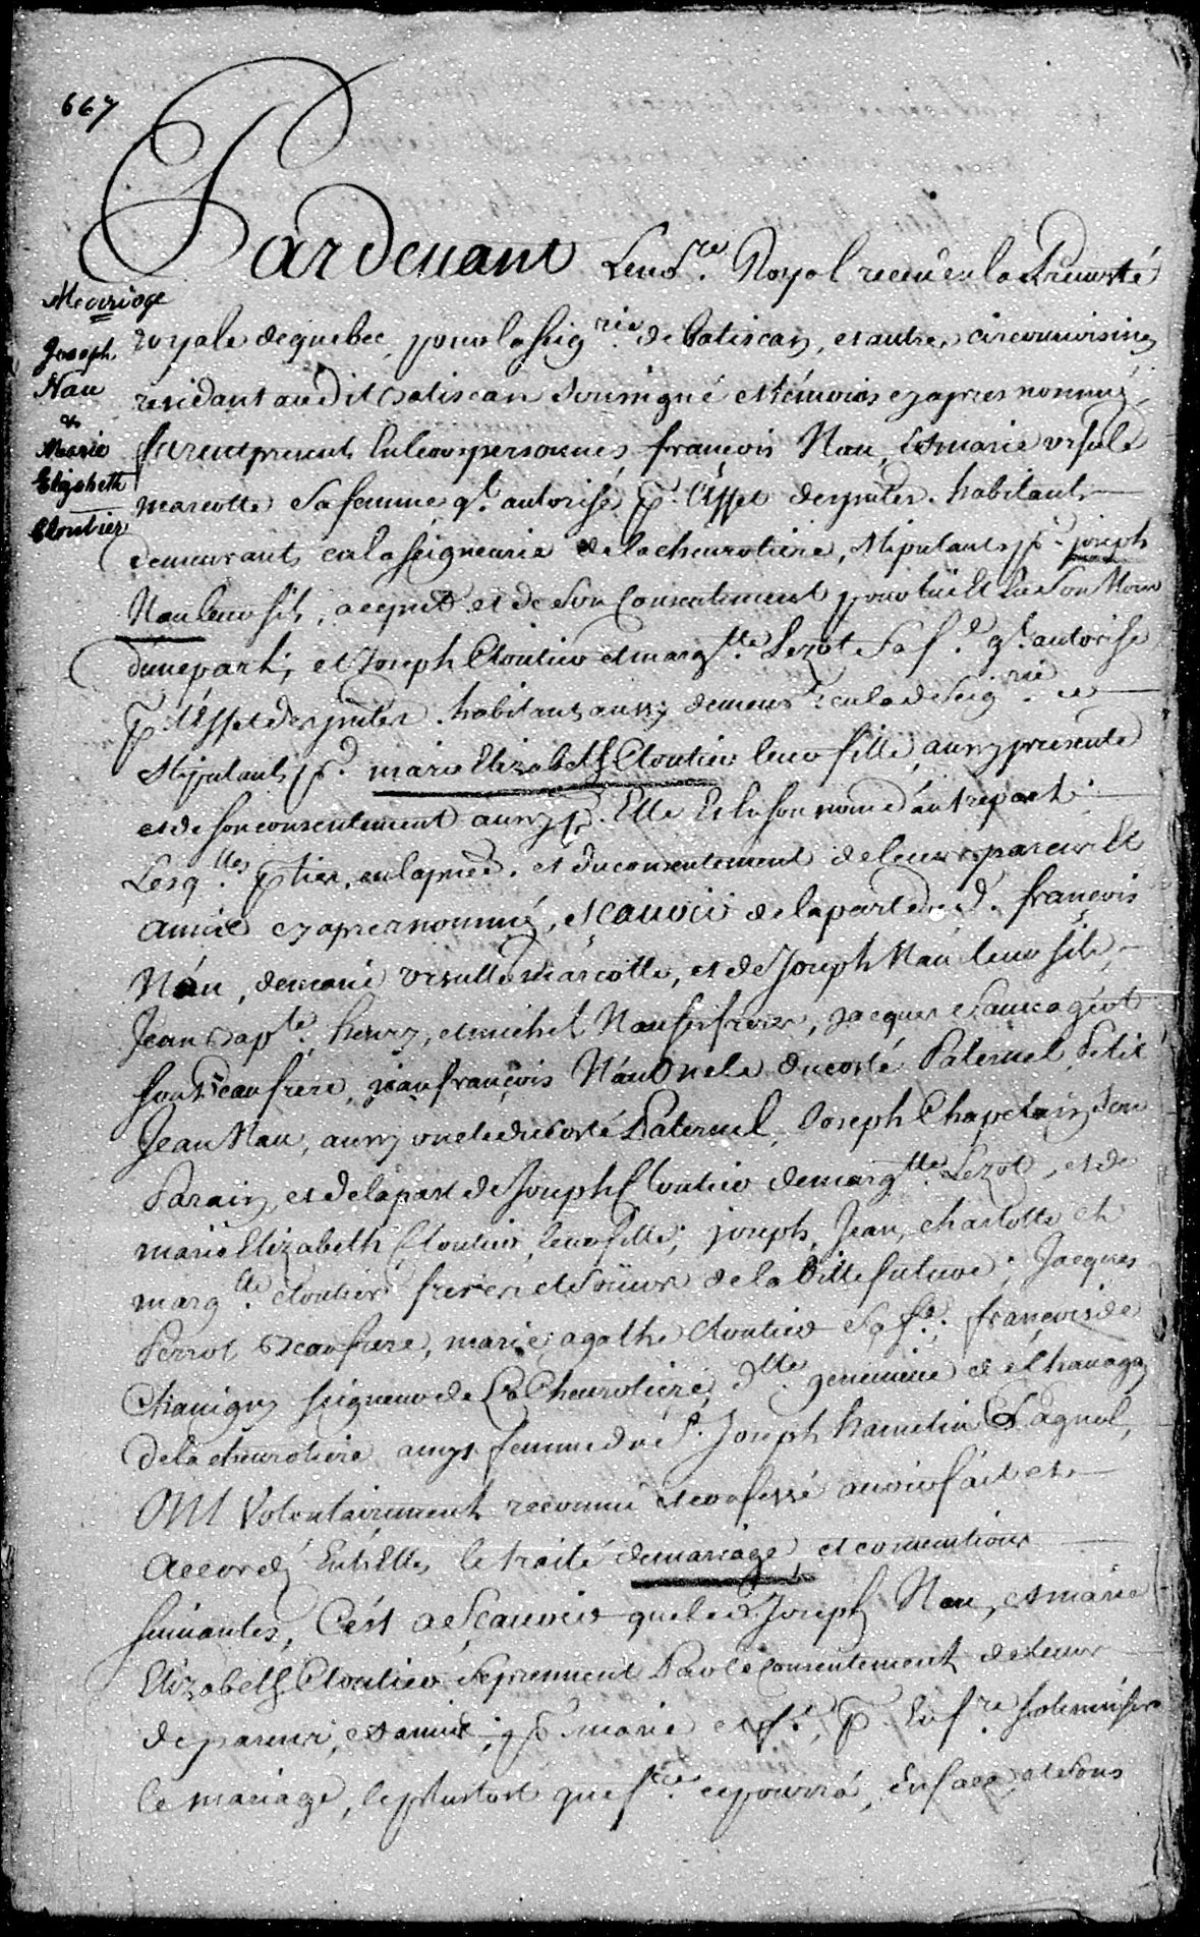 667
Pardevant Lenore. Royal receu en la Prevosté
Mariage
Joseph
Nau
&
Marie
Elizabeth
Cloutier
royale dequebec, pour la seigrie. de Batiscan, et autres circonvoisines
residant audit Batiscan soussigné et témoins cy apres nommés,
furent presents en leurs personnes françois Nau, et marie ursule
marcotte sa femme ql. autorise p. l'effet des pntes. habitants
demeurants en la seigneurie de la chevrotiere, stipulants pr. joseph
Nau leur fils, a ce pnt. et de son Consentement pour luy et En son Nom
dunepart; et Joseph Cloutier et margtte. Lezot sa fe. ql. autorise
p. l'effet des pntes. habitants aussy demeurts en la de seigrie. et
stipulants pr. marie Elizabeth Cloutier leur fille, aussy presente
et de son consentement aussy pr. Elle En son nom d'autre part;
Lesqlles. pties. en la pnce. et du consentement de leurs parens Et
amis cy apres nommés, sçavoir de la part dud. françois
Nau, de marie ursulle marcotte, et de Joseph Nau leur fils,
Jean Bapte. henry, et michel Nau ses freres, jacques sauvageot
son Beaufrere, jean françois Nau Oncle du costé Paternel, Petit
Jean Nau, aussy oncle du costé Paternel, Joseph Chapelain son
Parain, et de la part de Joseph Cloutier de margtte. Lezot, et de
marie Elizabeth Cloutier, leur fille; joseph, Jean, charlotte et
margtte. cloutier freres et soeurs de la ditte future; Jacques
Perrot Beaufrere, marie agathe Cloutier sa fe. françois de
Chavigny seigneur de La Chevrotiere, dlle. genevieve de chavigny
de la chevrotiere amys femme du sr. Joseph hamelin
Ont Volontairement reconnu et confessé avoir fait et
accordé Entr'Elles le traité de mariage, et conventions
suivantes, C'est a sçavoir que led. Joseph Nau, et marie
Elizabeth Cloutier se prennent Par le Consentement de leurs
de parens, et amis, pr. mary et fe. p. En fre. solemniser
le mariage, le plustost que fre. ce pourra, En face et sous